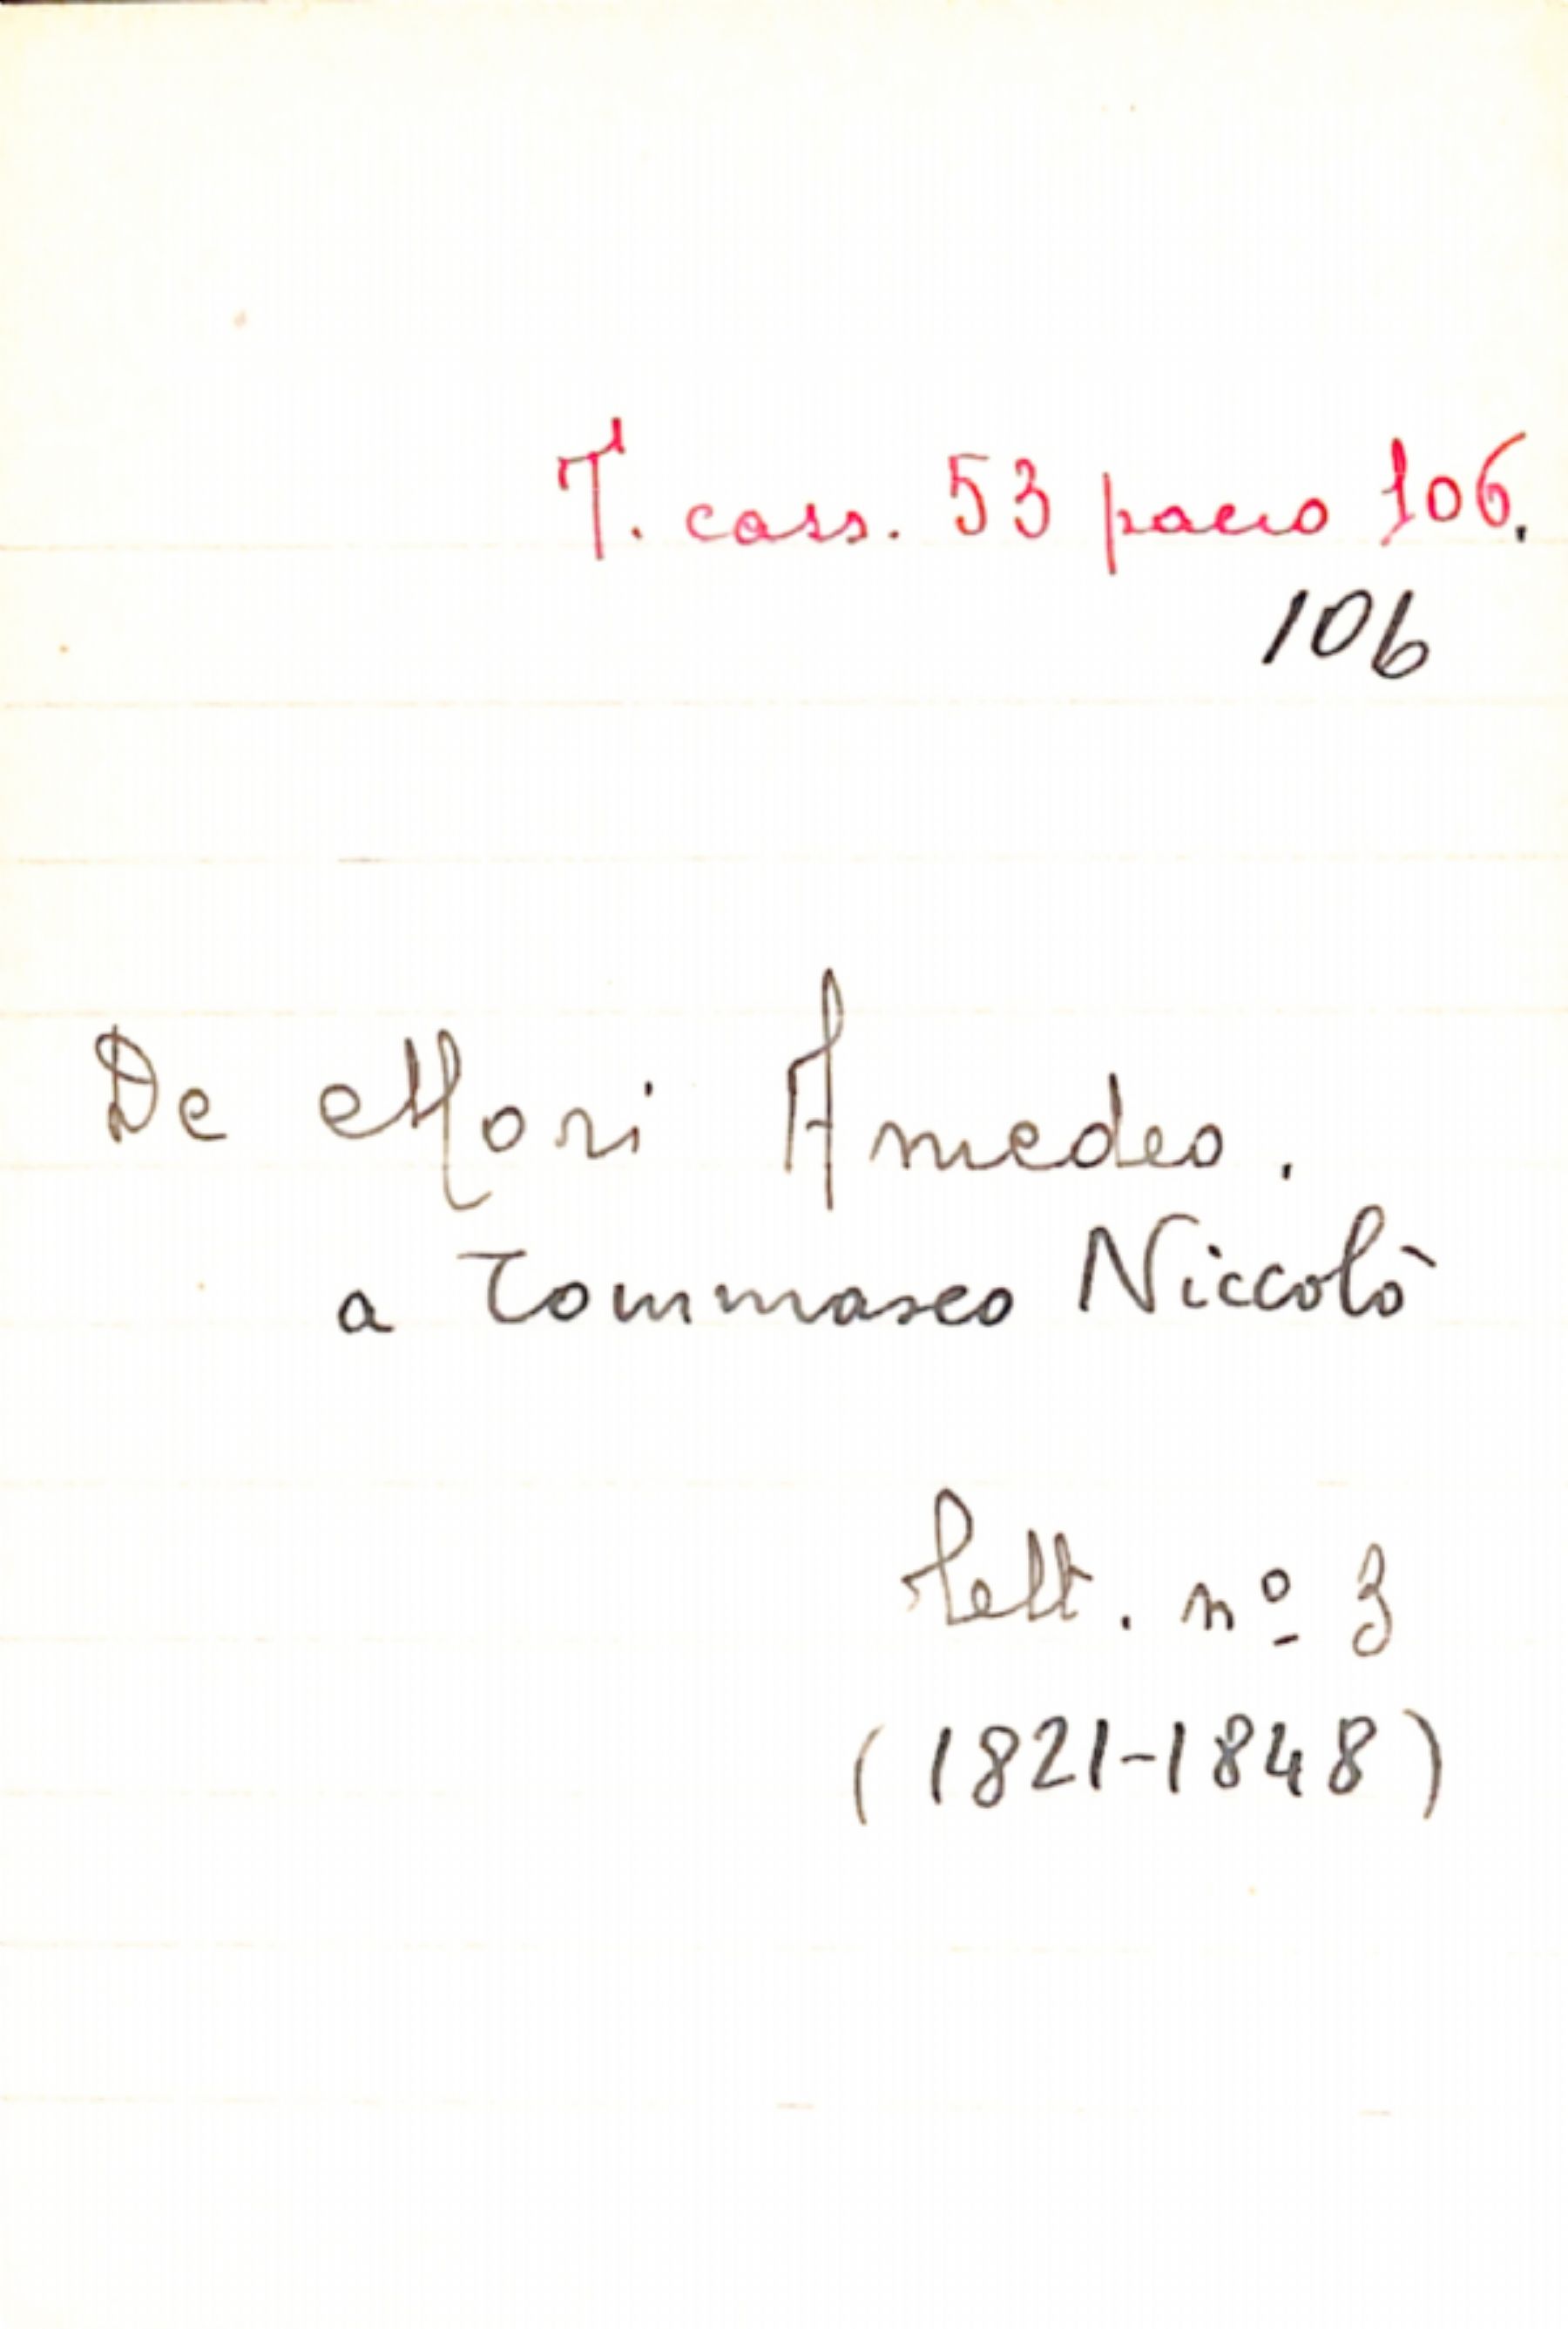 T. cass. 53 pacco 106.
106
De Mori Amedeo.
a Tommaseo Niccolò
lett. nº 3
(1821-1848)